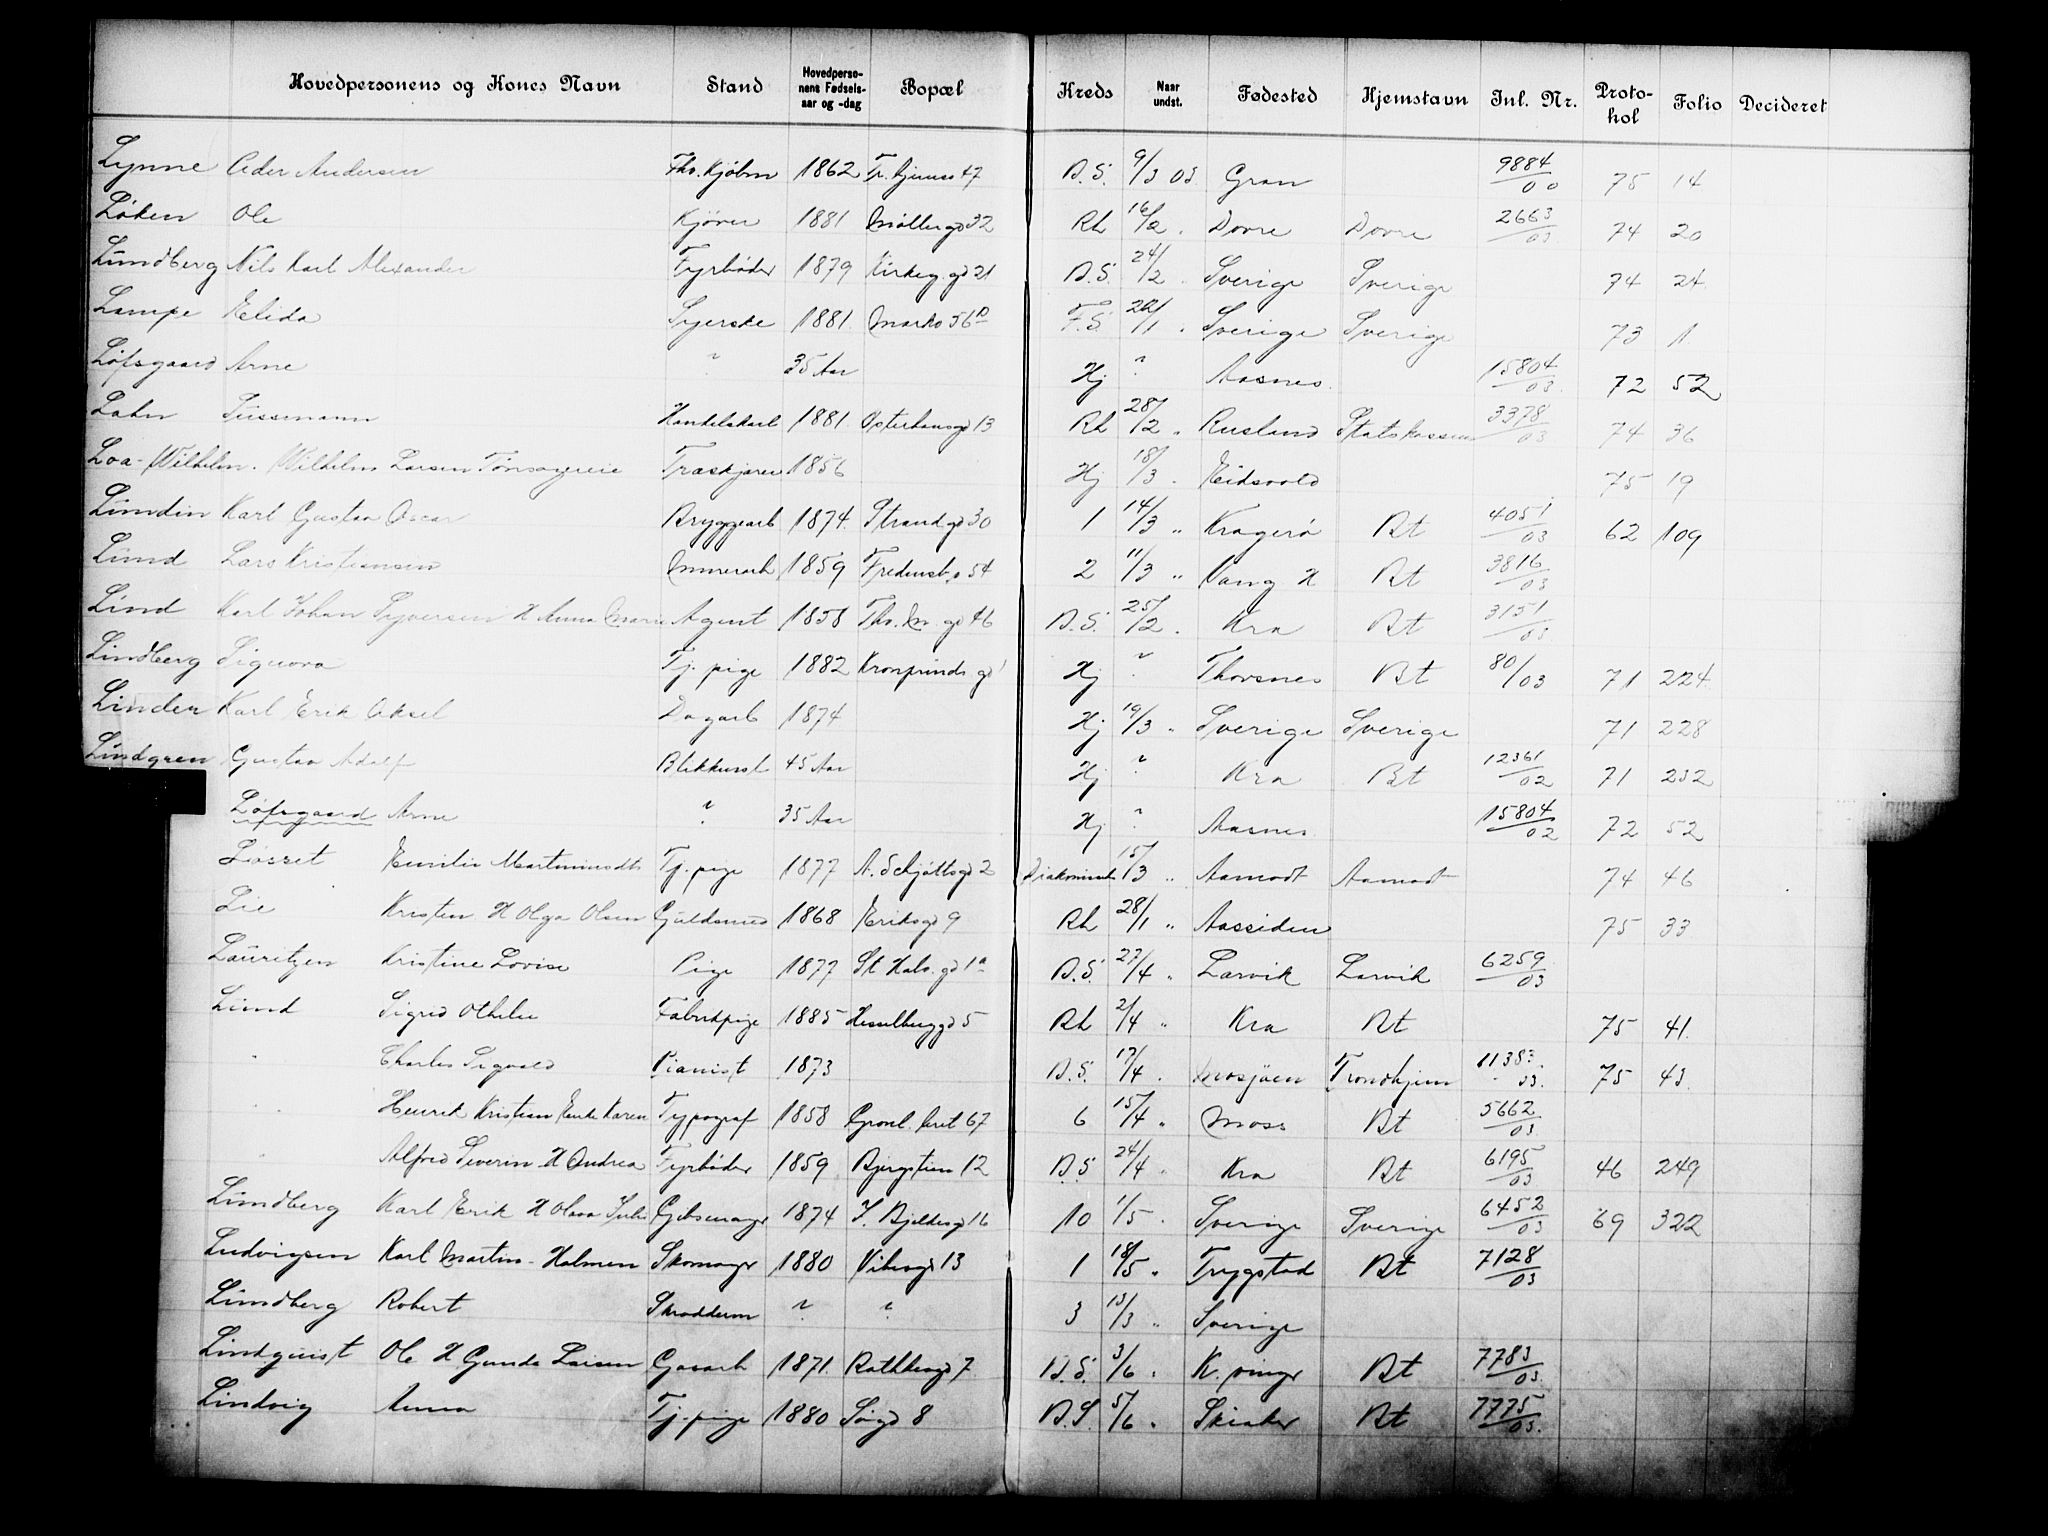 Hovedpersonens og Kones Navn Stand Hovedpersonens Fødselsaar og -dag Bopæl Kreds Naar undst. Fødested Hjemstavn Inl. Nr. Protokol Folio Decideret
Lynne Peder Andersen Fhv. Kjøbm 1862 47 B.S. 9/3 03 Gran 9884/00 75 14
Løken Ole Kjører 1881 Møllergd 32 Rh 16/2 " Dovre Dovre 2663/03 74 20
Lundberg Nils Karl Alexander Fyrbøder 1879 Kirkeg. gd 21 B.S. 24/2 " Sverige Sverige 74 24
Lampe Elida Syerske 1881. Markv 56 F.S. /1 " Sverige Sverige 73 1
Løfsgaard Arne ? 35 Aar Hj ? Aasnes 15804/03 72 52
Lahn Süssmann Handelskarl 1881 Osterhausgd 13 Rh 28/2 " Rusland Statskassen 3378/03 74 36
Loa-Wilhelm. Wilhelm Larsen Træskjærer 1856 Hj 18/3 " Eidsvold 75 19
Lundin Karl Gustav Oscar Bryggearb 1874. Strandgd 30 1 14/3 " Kragerø Bt 4051/03 62 109
Lund Lars Kristiansen Murerarb 1859 Fredensb.v 54 2 11/3 " Vang H Bt 3816/03
Lind Karl Johan Syversen H Anna Marie Agent 1858 Ths. M. gd 46 B.S. 25/2 " Kra Bt 3151/03
Lindberg Signora Tj. pige 1882 Kronprinds gd 1 Hj ? Thorsnes Bt 80/03 71 224
Linder Karl Erik Aksel Dagarb 1874 Hj 19/3 " Sverige Sverige 71 228
Lindgren Gustav Adolf Blikkensl 45 Aar Hj ? Kra Bt 12361/02 71 232
Løfsgaard Arne ? 35 Aar Hj ? Aasnes 15804/02 72 52
Løsset Emilie Martiniusdtr Tj. pige 1877 A. Schjøttsgd 2 15/3 " Aamodt Aamodt 74 46
Lie Kristen H Olga Olsen Guldsmed 1868 Eriksgd 9 Rh 28/1 " Aassiden 75 33
Lauritzen Kristine Lovise Pige 1877 St Halv. gd 1a B.S. 27/4 " Larvik Larvik 6259/03
Lund Sigrid Othilie Fabrikpige 1885 Hesselberggd 5 Rh 2/4 " Kra Bt 75 41.
" Charles Sigvald Pianist 1873 B.S. 17/4 " Mosjøen Trondhjem 11383/03. 75 43.
" Henrik Kristian Enke Karen Typograf 1858 Grønl. leret 67 6 15/4 " Moss Bt 5662/03
" Alfred Severin H Andrea Fyrbøder 1859 Bjergstien 12 B.S. 24/4 " Kra Bt 6195/03 46 249
Lundberg Karl Erik H Olava Julie Gibsmager 1874 H. Bjeldesgd 16 10 1/5 " Sverige Sverige 6452/03 69 322
Ludvigsen Karl Martin-Halmen Skomager 1880 Vibesgd 13 1 18/5 " Trygstad Bt 7128/03
Lundberg Robert Skrædderm ? ? 3 13/3 " Sverige
Lindquist Ole H Gunda Larsen Gasarb 1871. Rathkesgd 7 B.S. 3/6 " K. vinger Bt 7783/03.
Lindvig Anna Tj. pige 1880 8 B.S 5/6 " Skiaker Bt 7775/03.